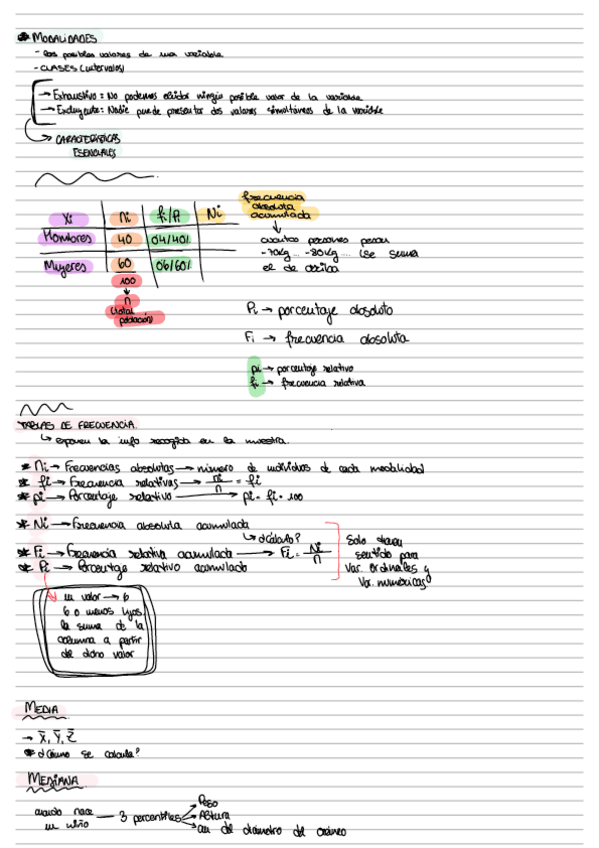 * MODALIDADES
- los posibles valores de una variable
- CLASES (intervalos)
→ Exhaustivo: No podemos olvidar ningún posible valor de la variable
→ Excluyente: Nadie puede presentar dos valores simultáneos de la variable
→ CARACTERÍSTICAS
ESENCIALES
Xi ni fi/pi Ni
Hombres 40 0'4/40%
Mujeres 60 0'6/60%
100
n
(total
población)
frecuencia
absoluta
acumulada
cuantas personas pesan
-70kg ... -80kg ... (se suma
el de arriba
Pi → porcentaje absoluto
Fi → frecuencia absoluta
pi → porcentaje relativo
fi → frecuencia relativa
TABLAS DE FRECUENCIA
↳ exponen la info recogida en la muestra.
* ni → Frecuencias absolutas → número de individuos de cada modalidad
* fi → Frecuencia relativas → ni/n = fi
* pi → Porcentaje relativo → pi = fi · 100
* Ni → Frecuencia absoluta acumulada
↳ ¿Cálculo?
* Fi → Frecuencia relativa acumulada → Fi = Ni/n
* Pi → Porcentaje relativo acumulado
Solo tienen
sentido para
Var. ordinales y
Var. numéricas
un valor → 6
6 o menos hijos
la suma de la
columna a partir
de dicho valor
MEDIA
→ X̄, Ȳ, Z̄
* ¿Cómo se calcula?
MEDIANA
cuando nace
un niño → 3 percentiles
→ Peso
→ Altura
→ cm del diámetro del cráneo